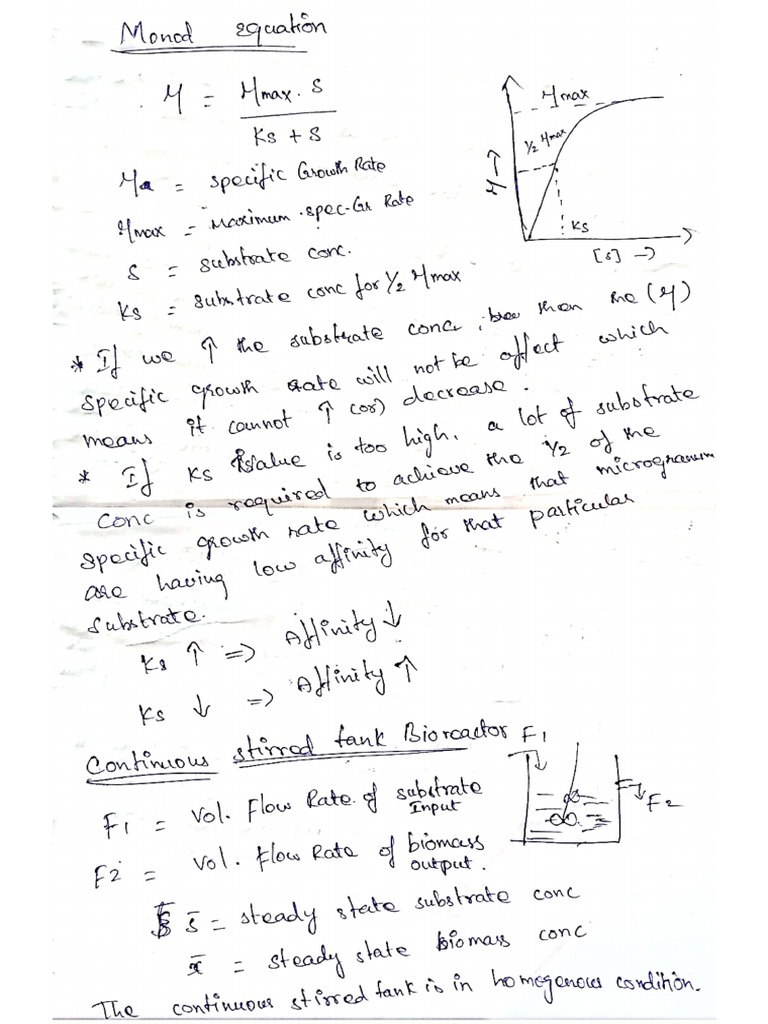 Monod equation
μ = μmax. S
Ks + S
μmax
1/2 μmax
μ →
Ks
[S] →
μ = specific Growth Rate
μmax = Maximum spec-Gr Rate
S = substrate conc.
Ks = substrate conc for 1/2 μmax
* If we ↑ the substrate conc, then the (μ)
specific growth rate will not be affect which
means it cannot ↑ (or) decrease.
* If Ks value is too high, a lot of substrate
conc is required to achieve the 1/2 of the
specific growth rate which means that
are having low affinity for that particular
substrate.
Ks ↑ => Affinity ↓
Ks ↓ => Affinity ↑
Continuous stirred tank Bioreactor
F1
F2
F1 = Vol. Flow Rate of substrate Input
F2 = Vol. Flow Rate of biomass output.
s̄ = steady state substrate conc
x̄ = steady state biomass conc
The continuous stirred tank is in homogenous condition.